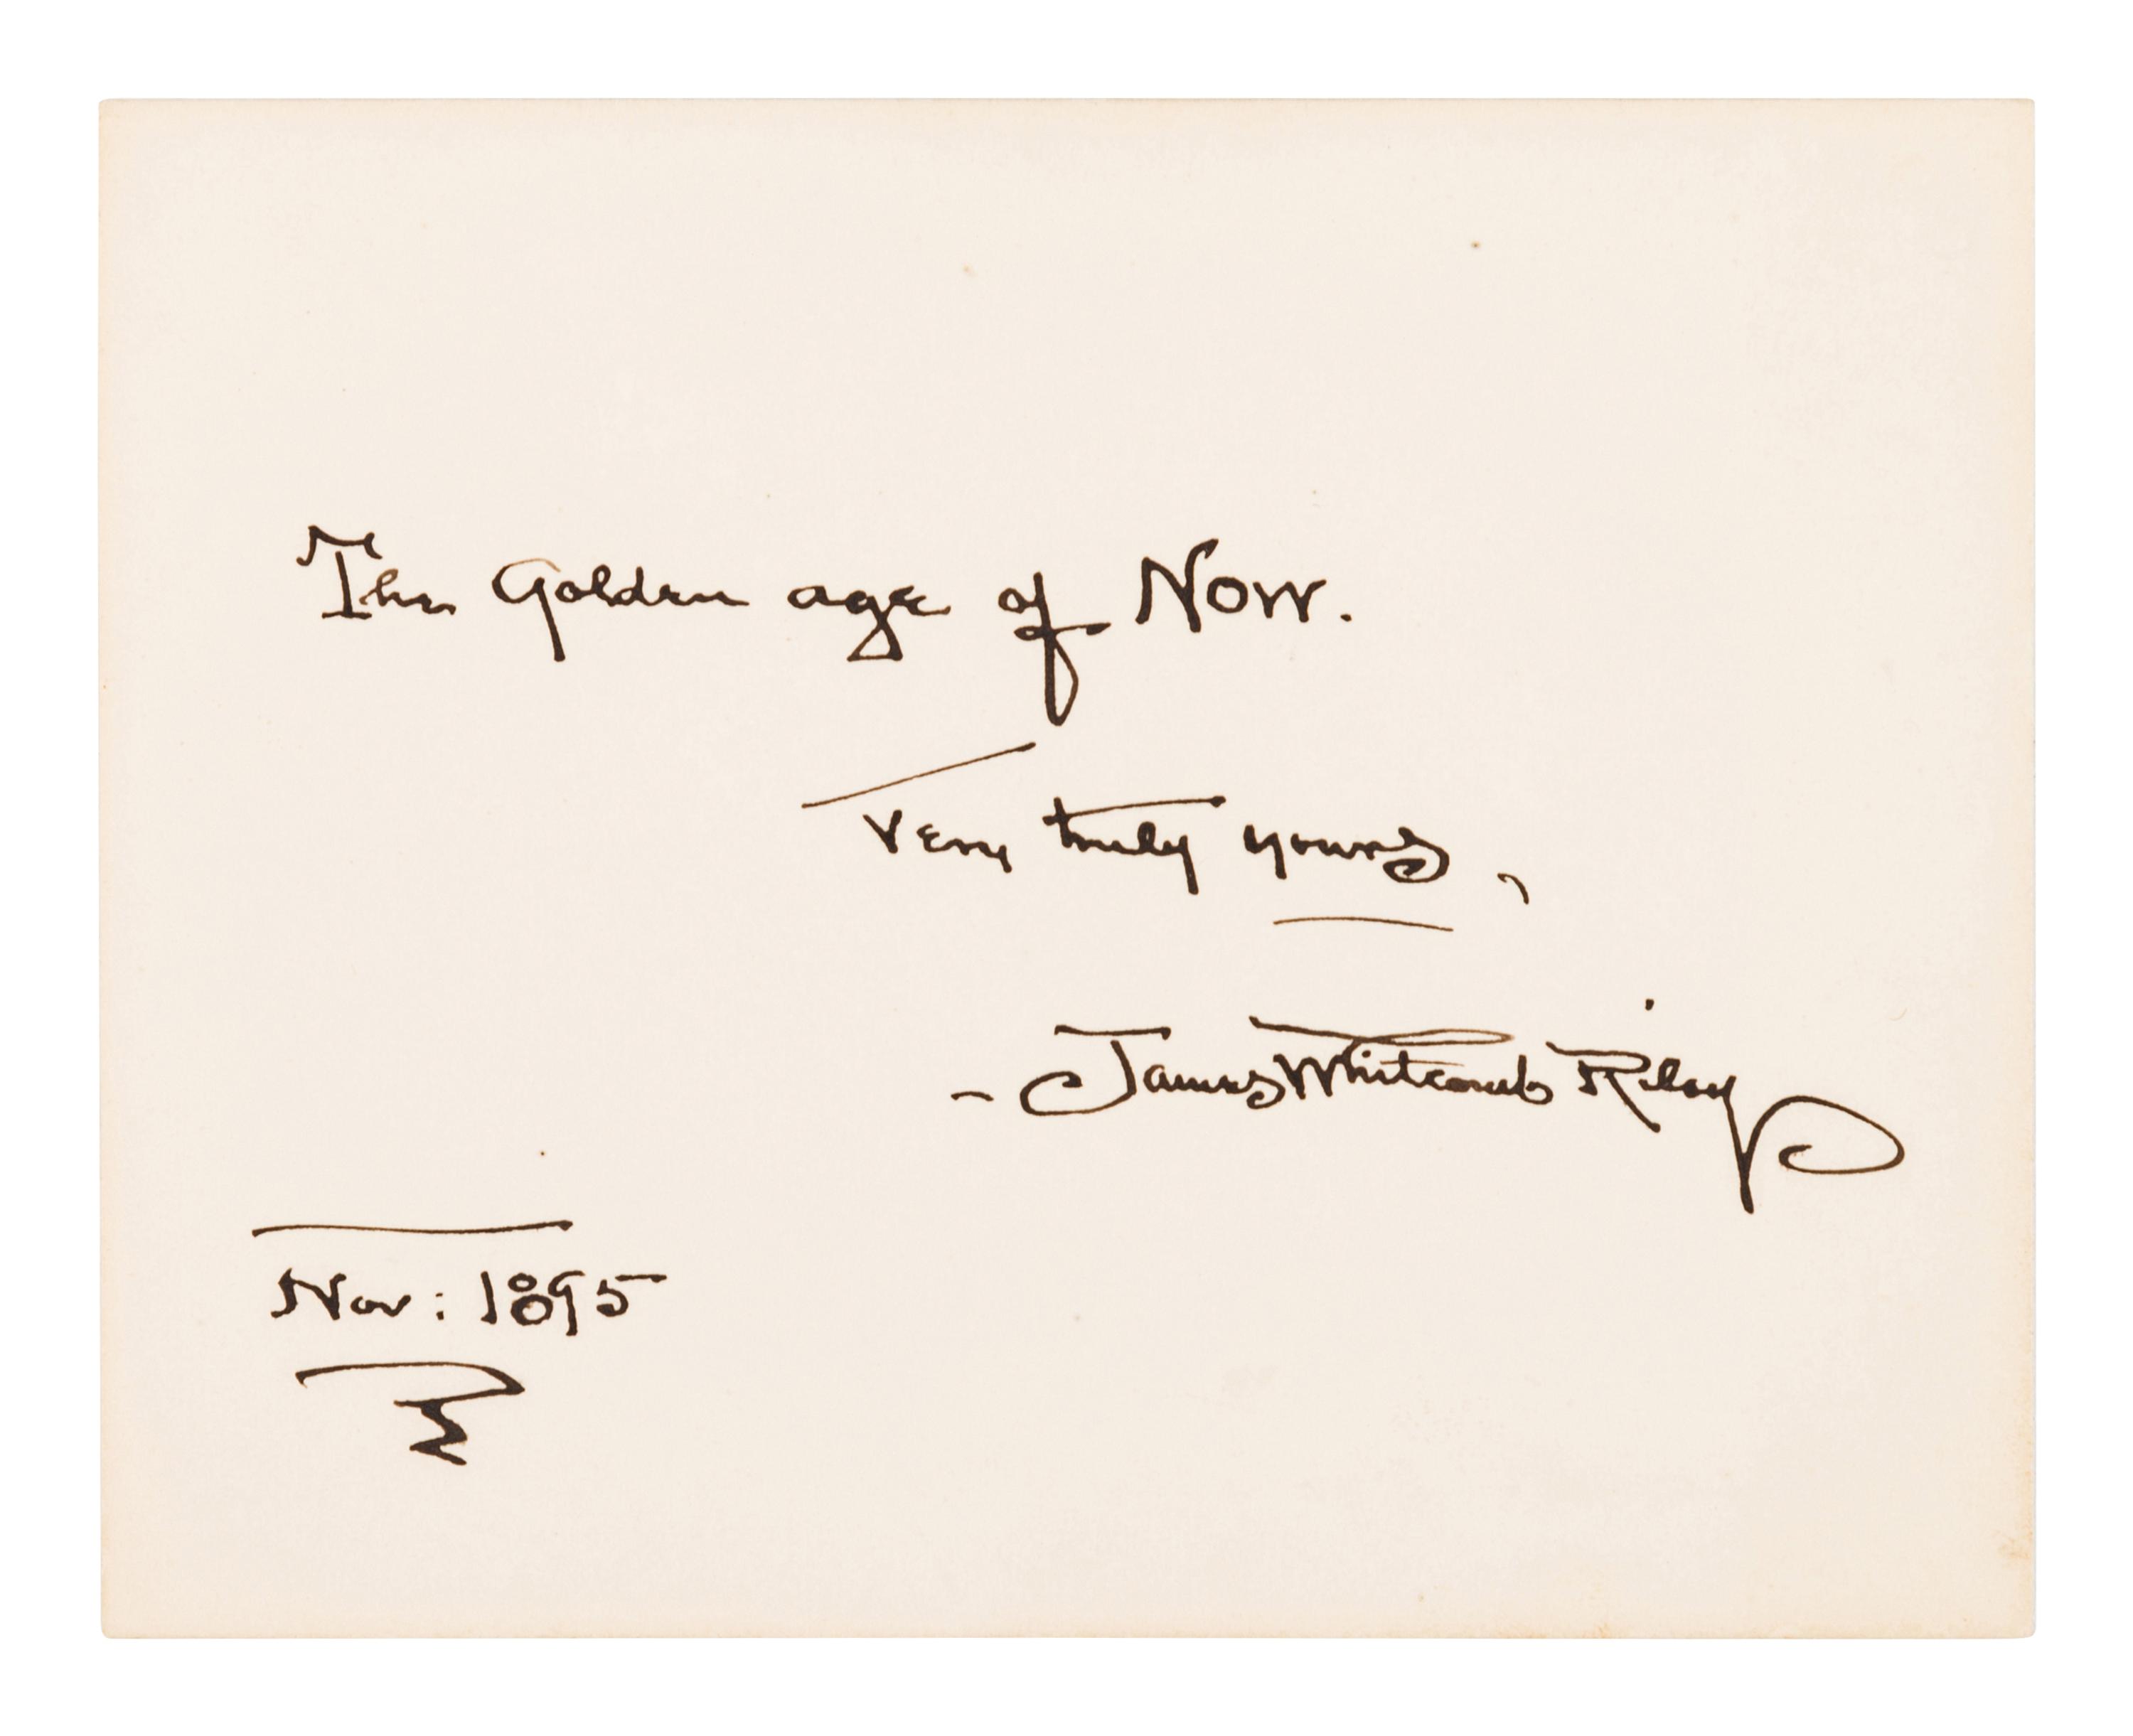 The Golden age of Now.
Very truly yours,
- James Whitcomb Riley
Nov: 1895